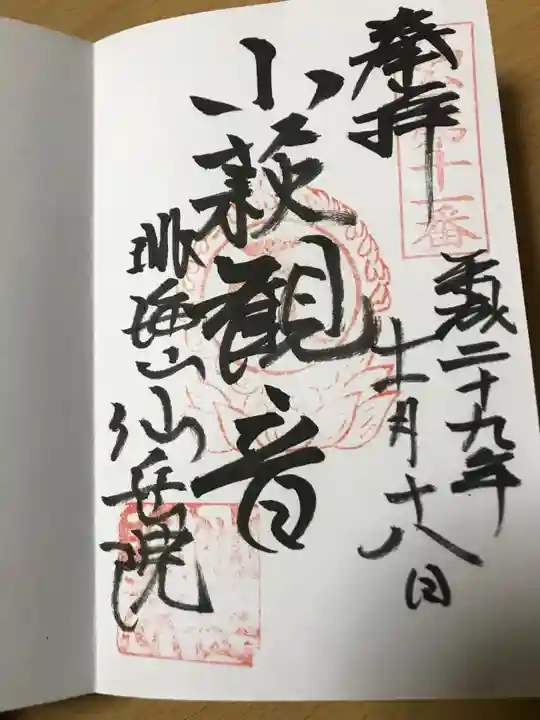 奉拝
第十一番
平成二十九年
十一月十八日
小萩観音
眺海山仙岳院